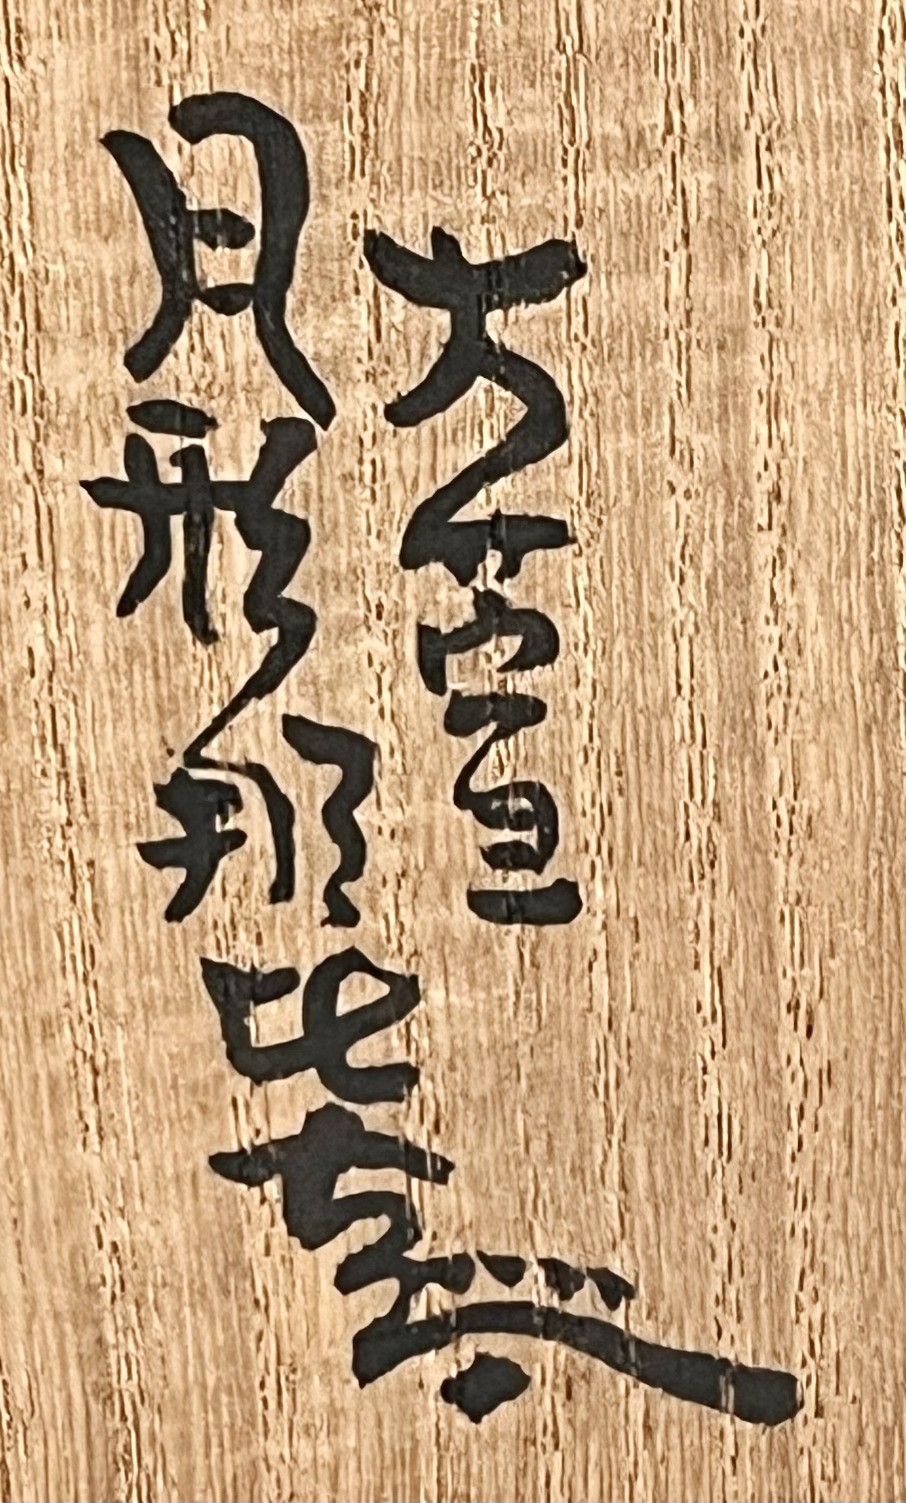 大萱
月形那比古